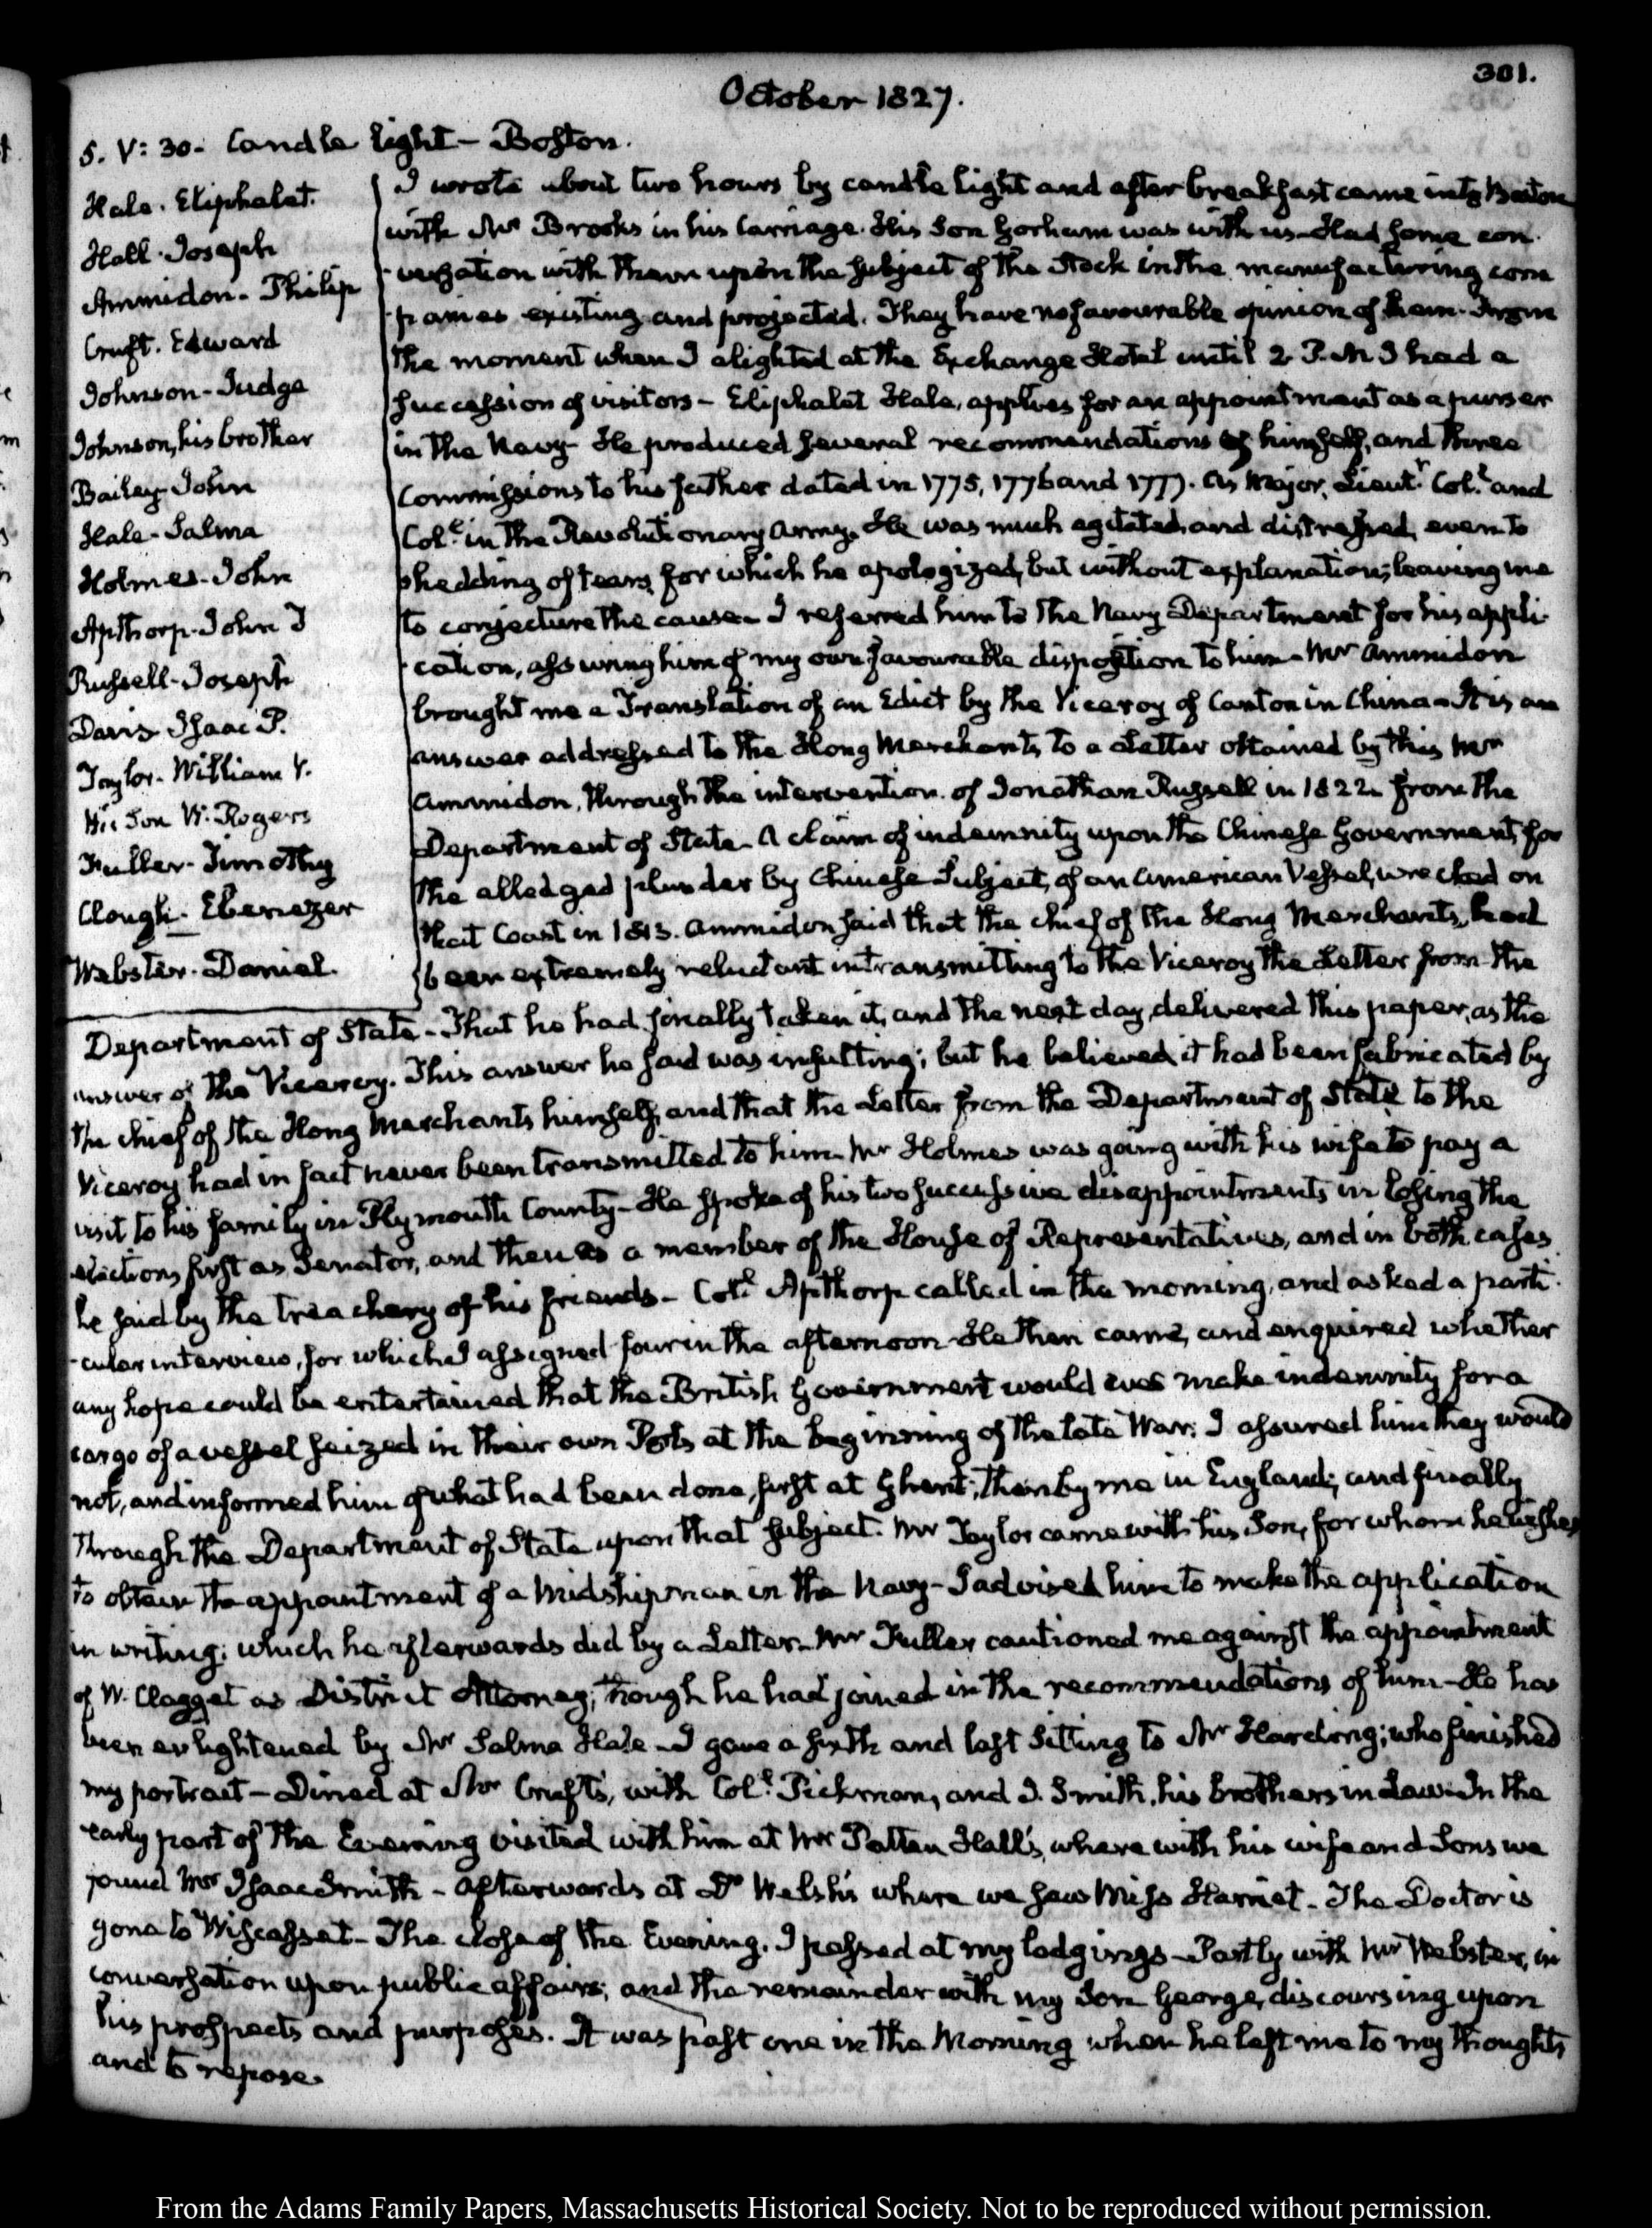 301.
October 1827.
5. V: 30. Candle light – Boston.
Hale. Eliphalet.
Hall. Joseph
Ammidon. Philip
Cruft. Edward
Johnson - Judge
Johnson, his brother
Bailey John
Hale - Salma
Holmes - John
Apthorp. John T
Russell - Joseph
Davis Isaac P.
Taylor. William V.
His Son W. Rogers
Fuller - Timothy
Clough. Ebenezer
Webster. Daniel.
I wrote about two hours by candle light and after breakfast came into Boston
with Mr Brooks in his Carriage. His Son Gorham was with us – Had some con-
-versation with them upon the subject of the Stock in the manufacturing com
-panies existing and projected. They have no favourable opinion of them. From
the moment when I alighted at the Exchange Hotel until 2 P.M I had a
succession of visitors – Eliphalet Hale, applies for an appointment as a purser
in the Navy – He produced several recommendations of himself, and three
Commissions to his father dated in 1775, 1776 and 1777. as Major, Lieutt. Coll. and
Coll. in the Revolutionary Army. He was much agitated, and distressed, even to
shedding of tears, for which he apologized, but without explanation; leaving me
to conjecture the cause – I referred him to the Navy Department for his appli-
-cation, assuring him of my own favourable disposition to him – Mr Ammidon
brought me a Translation of an Edict by the Viceroy of Canton in China – It is an
answer addressed to the Hong Merchants, to a Letter obtained by this Mr
Ammidon, through the intervention of Jonathan Russell in 1822 from the
Department of State – A claim of indemnity upon the Chinese Government, for
the alledged plunder by Chinese Subjects, of an American Vessel, wrecked on
that Coast in 1813. Ammidon said that the chief of the Hong Merchants, had
been extremely reluctant in transmitting to the Viceroy the Letter from the
Department of State – That he had finally taken it, and the next day, delivered this paper, as the
answer of the Viceroy. This answer he said was insulting; but he believed it had been fabricated by
the chief of the Hong Merchants himself, and that the Letter from the Department of State to the
Viceroy had in fact never been transmitted to him – Mr Holmes was going with his wife to pay a
visit to his family in Plymouth County – He spoke of his two successive disappointments in losing the
elections, first as Senator, and then as a member of the House of Representatives, and in both cases
he said by the treachery of his friends – Coll. Apthorp called in the morning, and asked a parti-
-cular interview, for which I assigned four in the afternoon – He then came, and enquired whether
any hope could be entertained that the British Government would ever make indemnity for a
cargo of a vessel seized in their own Ports at the beginning of the late War. I assured him they would
not, and informed him of what had been done, first at Ghent; then by me in England; and finally
through the Department of State upon that subject. Mr Taylor came with his Son, for whom he wishes
to obtain the appointment of a Midshipman in the Navy – I advised him to make the application
in writing; which he afterwards did by a Letter – Mr Fuller cautioned me against the appointment
of W. Clagget as District Attorney; though he had joined in the recommendations of him – He has
been enlightened by Mr Salma Hale – I gave a sixth and last sitting to Mr Harding; who finished
my portrait – Dined at Mr Cruft's, with Coll. Pickman, and J. Smith, his brothers in Law – In the
early part of the Evening visited with him at Mr Patten Hall's, where with his wife and Sons we
found Mr Isaac Smith – Afterwards at Dr Welsh's where we saw Miss Harriet – The Doctor is
gone to Wiscasset – The close of the Evening, I passed at my lodgings – Partly with Mr Webster, in
conversation upon public affairs; and the remainder with my Son George, discoursing upon
his prospects and purposes. It was past one in the Morning when he left me to my thoughts
and to repose.
From the Adams Family Papers, Massachusetts Historical Society. Not to be reproduced without permission.